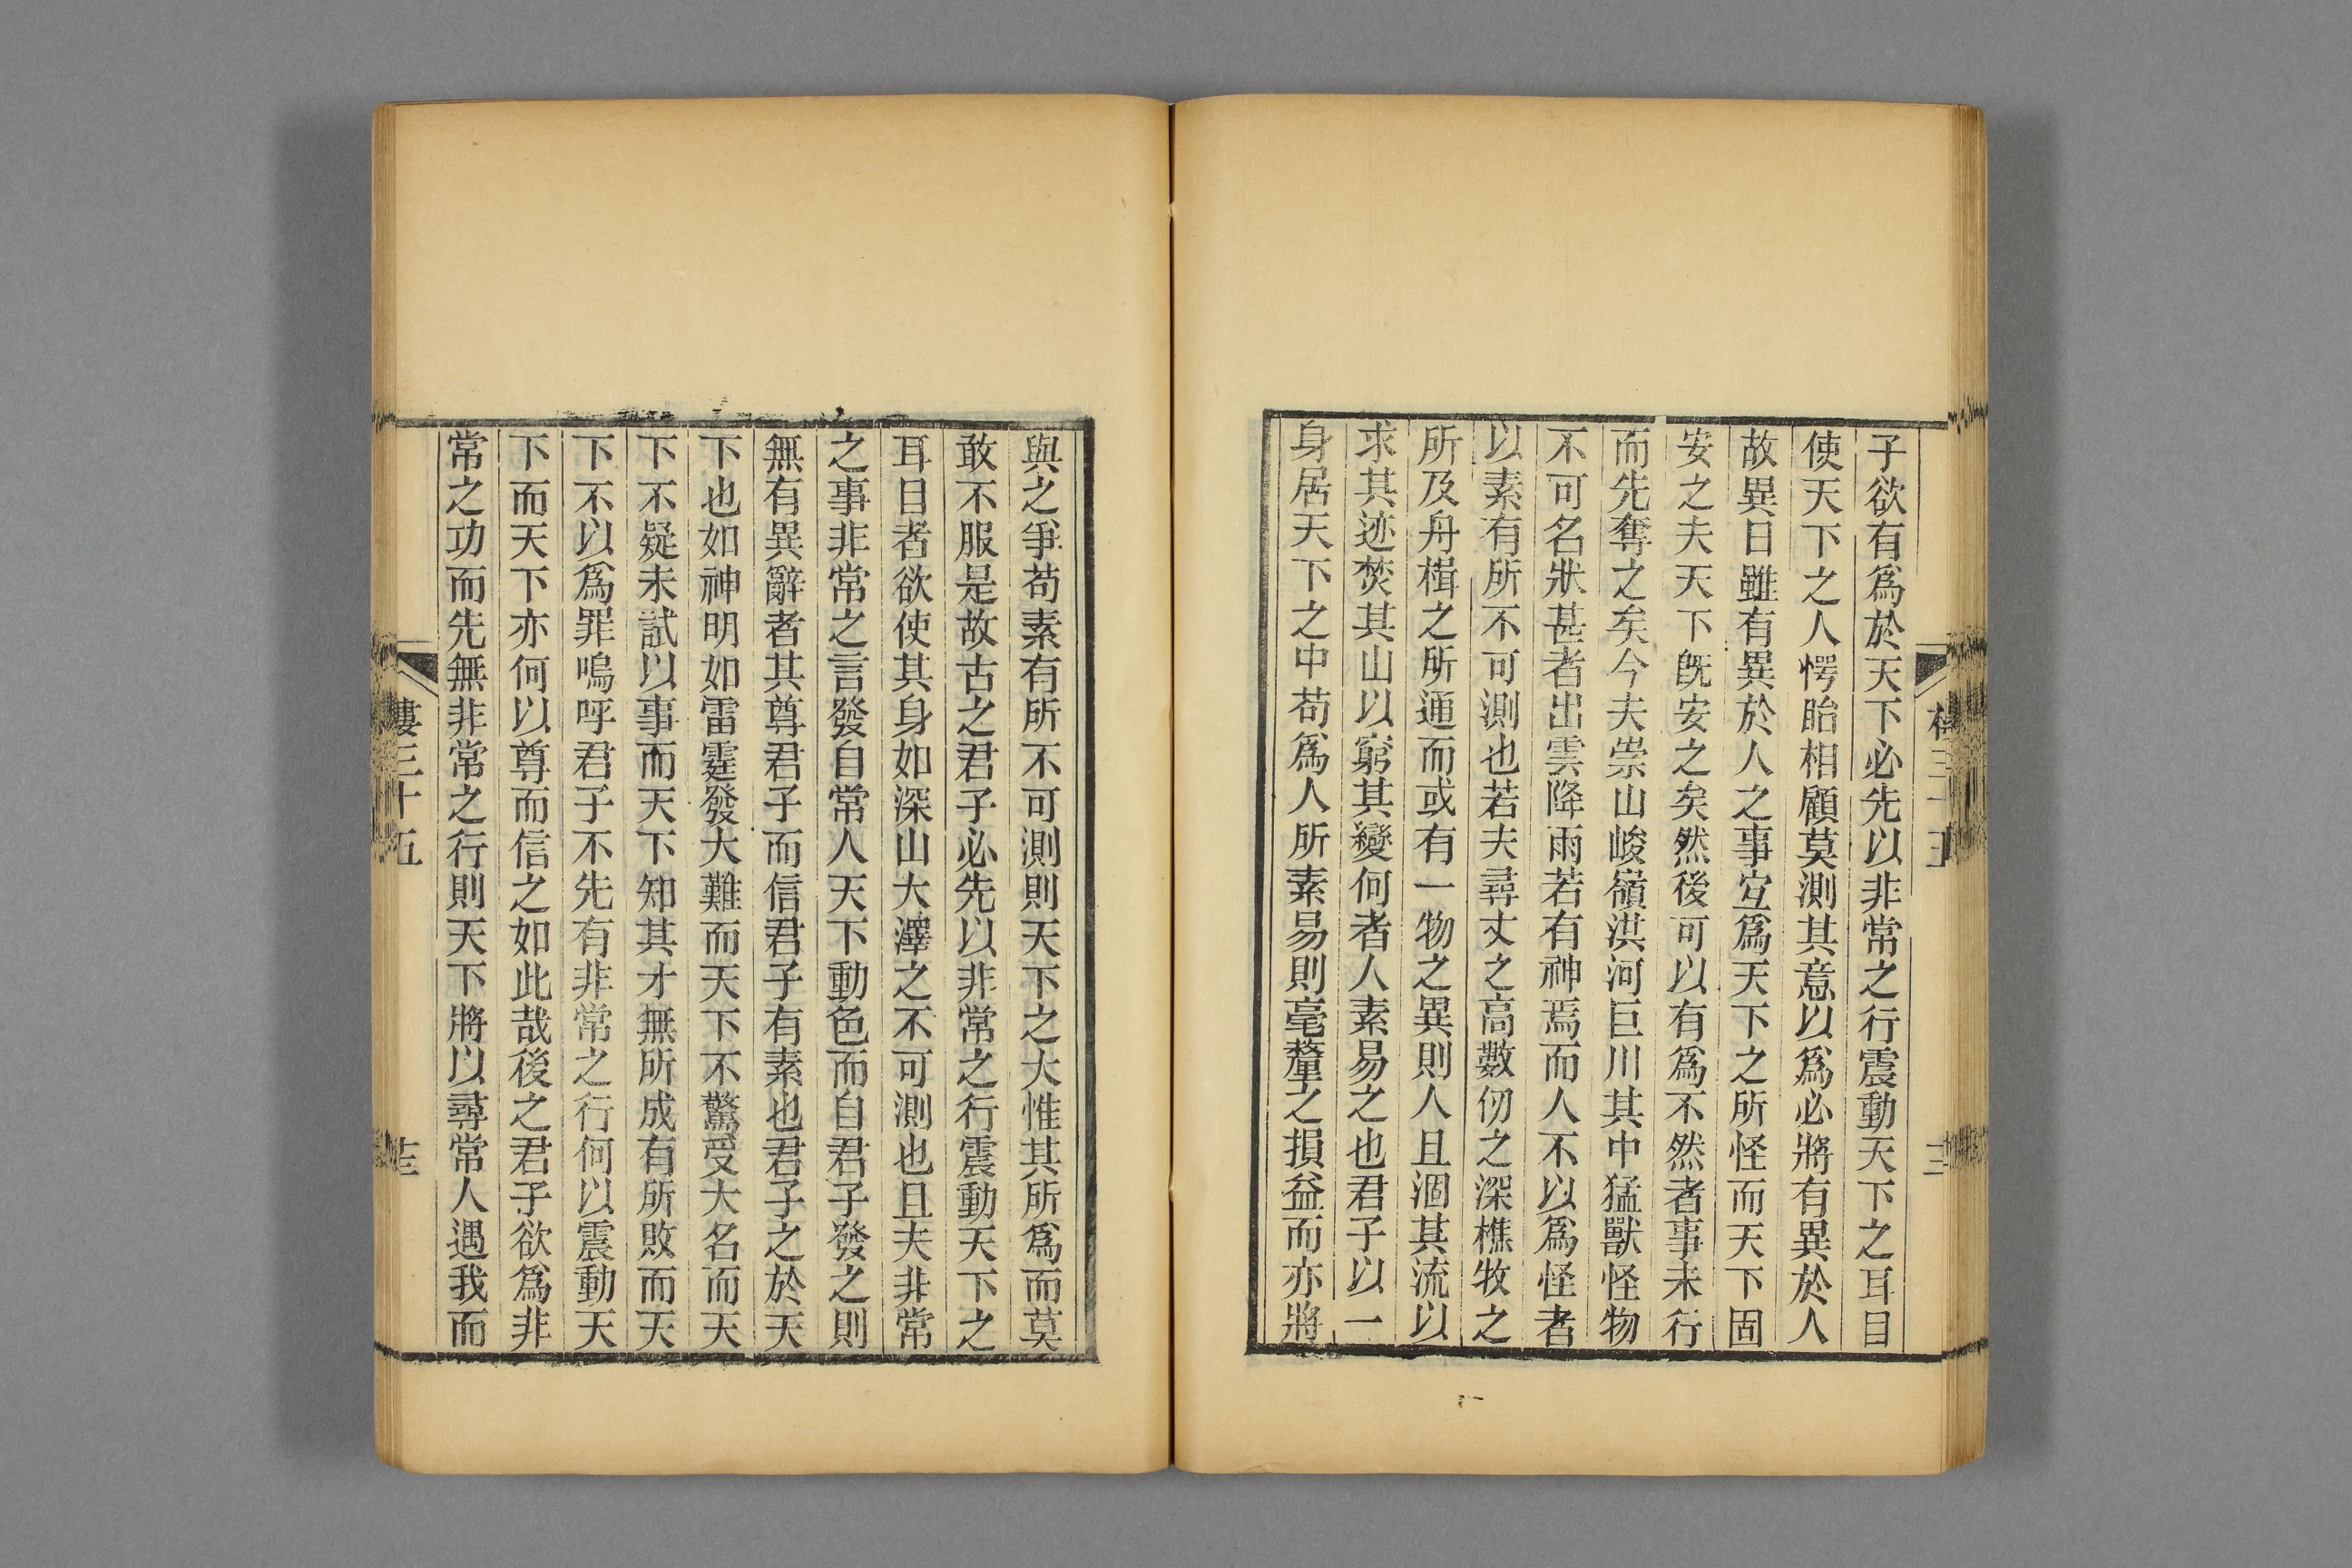 子欲有爲於天下必先以非常之行震動天下之耳目
使天下之人愕眙相顧莫測其意以爲必將有異於人
故異日雖有異於人之事宜爲天下之所怪而天下固
安之夫天下旣安之矣然後可以有爲不然者事未行
而先奪之矣今夫崇山峻嶺洪河巨川其中猛獸怪物
不可名狀甚者出雲降雨若有神焉而人不以爲怪者
以素有所不可測也若夫尋丈之高數仞之深樵牧之
所及舟楫之所通而或有一物之異則人且涸其流以
求其迹焚其山以窮其變何者人素易之也君子以一
身居天下之中苟爲人所素易則毫釐之損益而亦將
與之爭苟素有所不可測則天下之大惟其所爲而莫
敢不服是故古之君子必先以非常之行震動天下之
耳目者欲使其身如深山大澤之不可測也且夫非常
之事非常之言發自常人天下動色而自君子發之則
無有異辭者其尊君子而信君子有素也君子之於天
下也如神明如雷霆發大難而天下不驚受大名而天
下不疑未試以事而天下知其才無所成有所敗而天
下不以爲罪嗚呼君子不先有非常之行何以震動天
下而天下亦何以尊而信之如此哉後之君子欲爲非
常之功而先無非常之行則天下將以尋常人遇我而
樓三十五